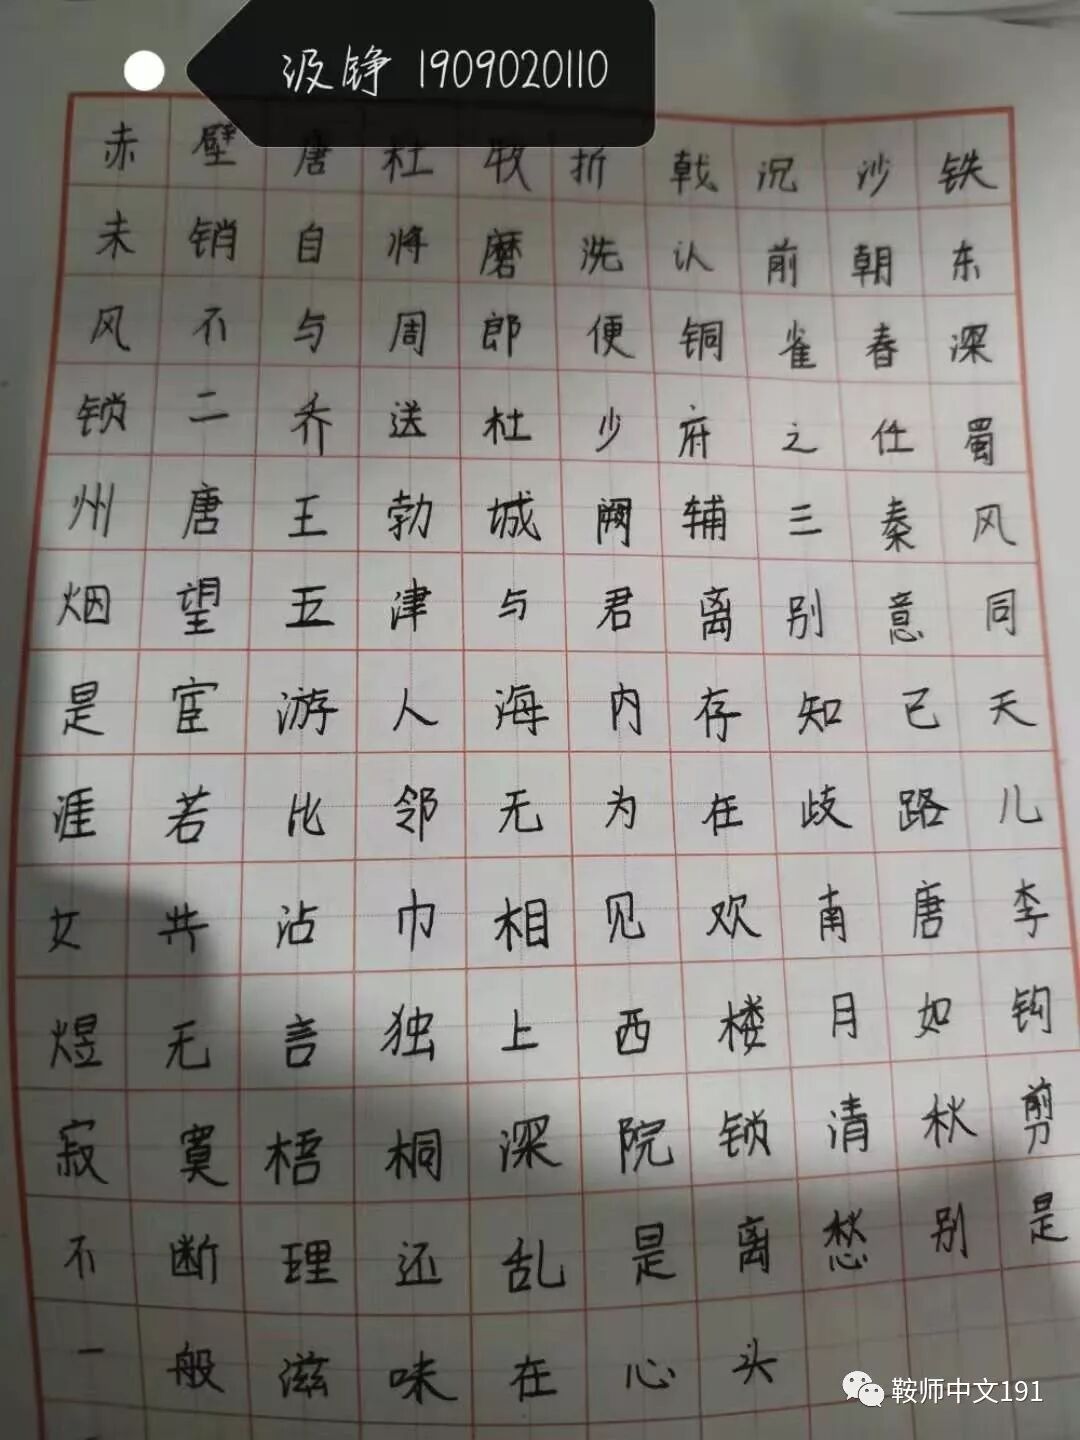 汲铮 1909020110
赤壁唐杜牧折戟沉沙铁
未销自将磨洗认前朝东
风不与周郎便铜雀春深
锁二乔送杜少府之任蜀
州唐王勃城阙辅三秦风
烟望五津与君离别意同
是宦游人海内存知己天
涯若比邻无为在歧路儿
女共沾巾相见欢南唐李
煜无言独上西楼月如钩
寂寞梧桐深院锁清秋剪
不断理还乱是离愁别是
一般滋味在心头
鞍师中文191